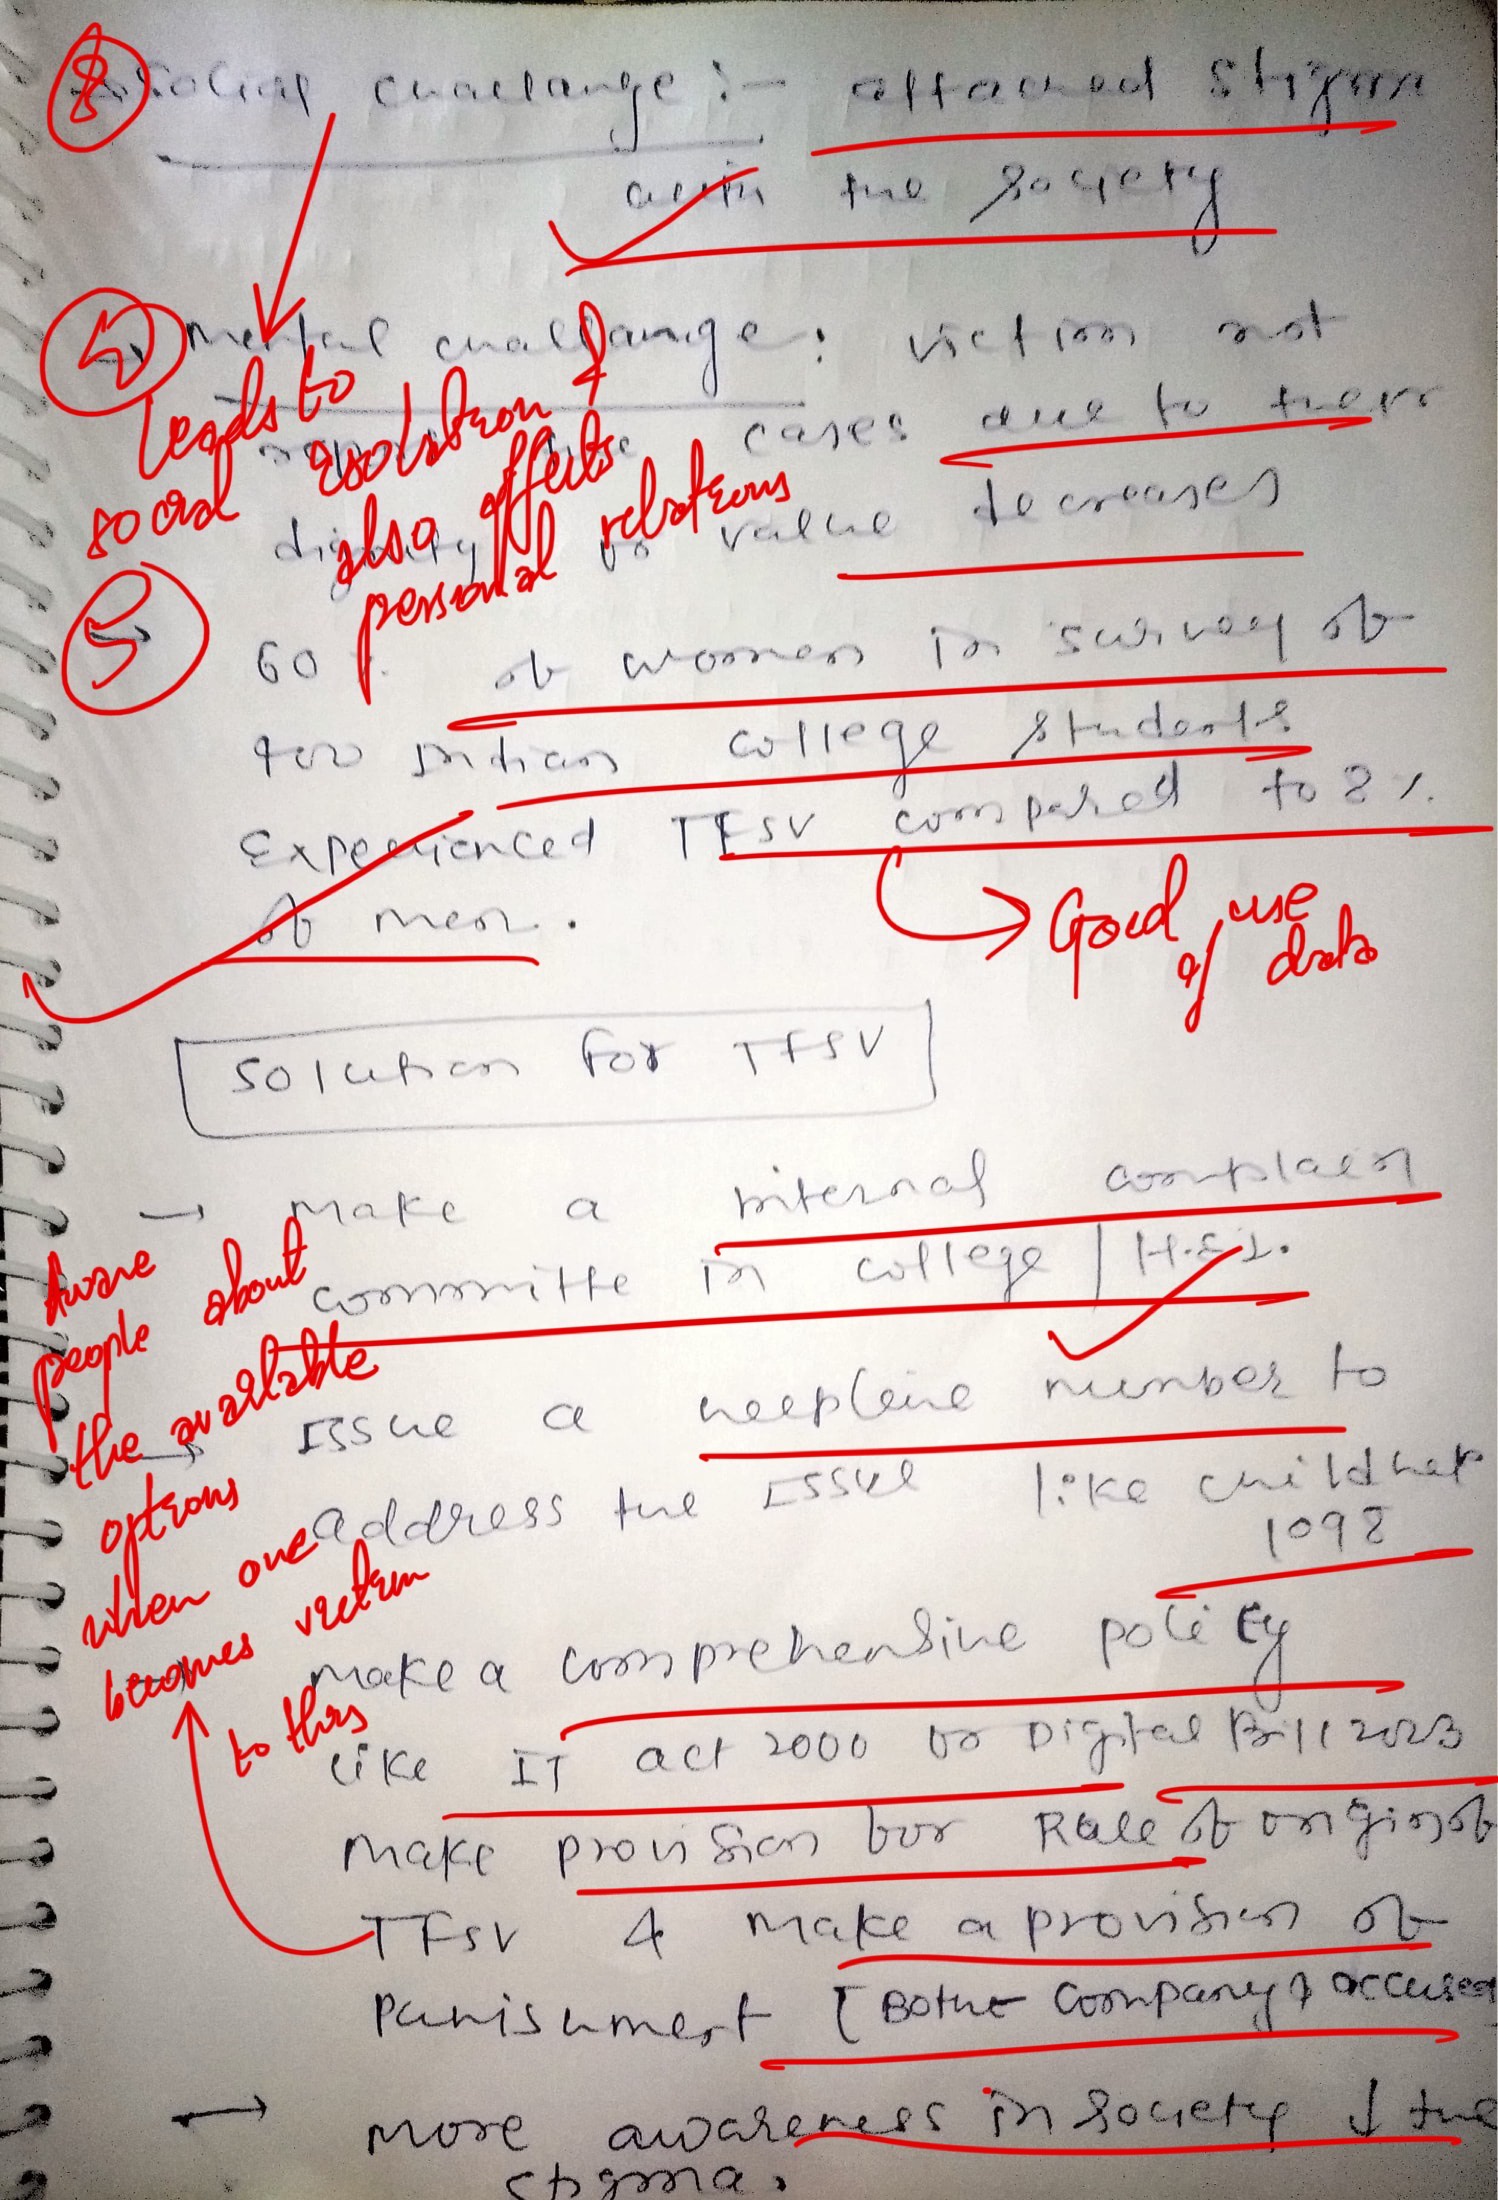 8
Social challange :- attached stigma
with the society
4
→ Mental challange : victim not
cases due to there
dignity or value decreases
Leads to
social isolation &
also affects
personal relations
5
→ 60 % of women in survey of
400 Indian college students
Experienced TFSV compared to 8 %.
of men.
Good use
of data
Solution for TFSV
→ Make a internal complain
committe in college / H.E.I.
→ Issue a helpline number to
address the Issue like childhelp
1098
Aware
people about
the available
options
when one
becomes victim
to this
Make a comprehensive policy
like IT act 2000 or Digital Bill 2023
Make provision for Rule of origin of
TFSV & make a provision of
Punishment [Bothe company & accused
→ More awareness in society ↓ the
stigma.